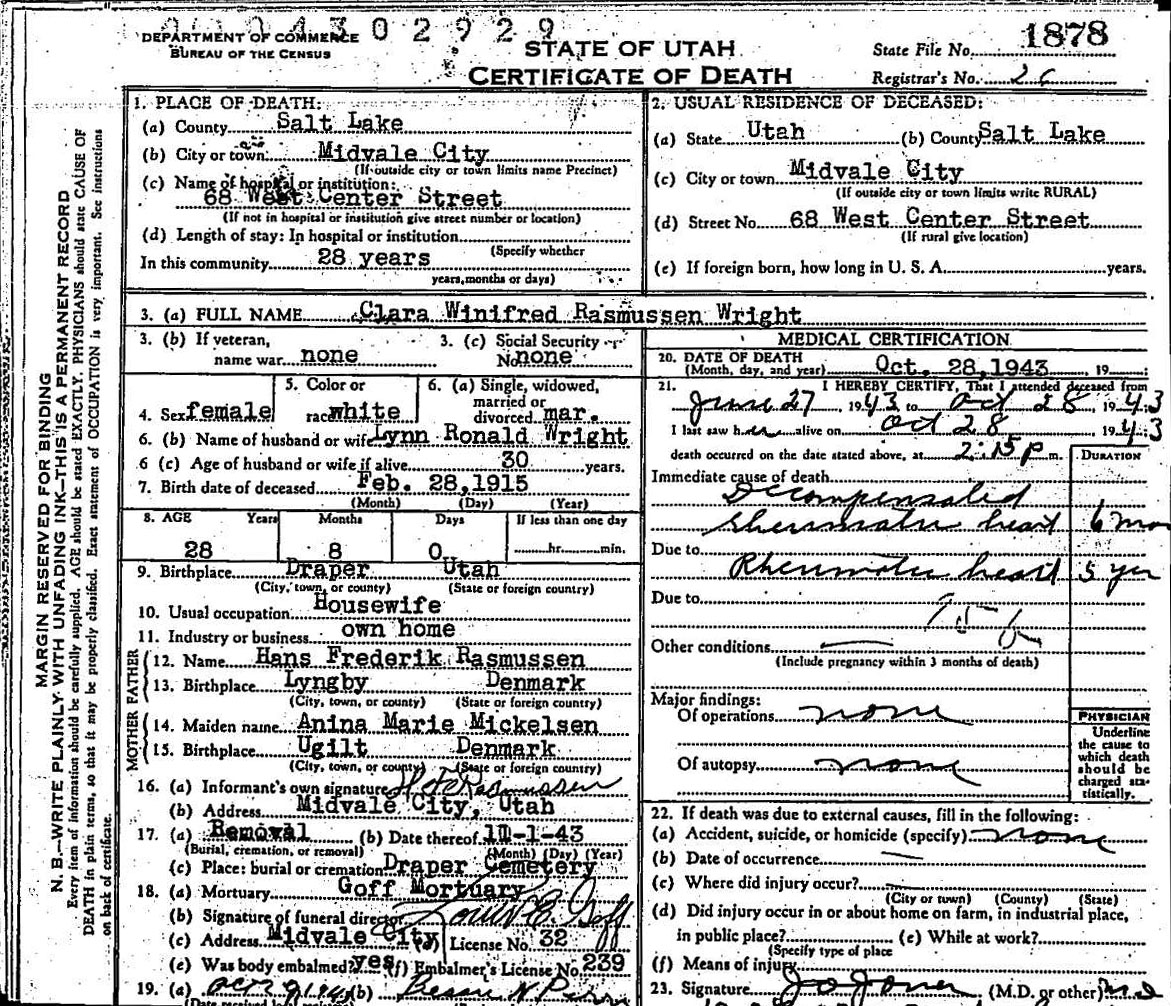 004302929
DEPARTMENT OF COMMERCE
BUREAU OF THE CENSUS
STATE OF UTAH
CERTIFICATE OF DEATH
State File No. 1878
Registrar's No. 26
MARGIN RESERVED FOR BINDING
N. B.—WRITE PLAINLY WITH UNFADING INK—THIS IS A PERMANENT RECORD
Every item of information should be carefully supplied. AGE should be stated EXACTLY. PHYSICIANS should state CAUSE OF
DEATH in plain terms, so that it may be properly classified. Exact statement of OCCUPATION is very important. See instructions
on back of certificate.
1. PLACE OF DEATH:
(a) County Salt Lake
(b) City or town: Midvale City
(If outside city or town limits name Precinct)
(c) Name of hospital or institution:
68 West Center Street
(If not in hospital or institution give street number or location)
(d) Length of stay: In hospital or institution
(Specify whether
In this community 28 years
years, months or days)
2. USUAL RESIDENCE OF DECEASED:
(a) State Utah (b) County Salt Lake
(c) City or town Midvale City
(If outside city or town limits write RURAL)
(d) Street No. 68 West Center Street
(If rural give location)
(e) If foreign born, how long in U. S. A. years.
3. (a) FULL NAME Clara Winifred Rasmussen Wright
3. (b) If veteran, 3. (c) Social Security
name war none No none
4. Sex female
5. Color or
race white
6. (a) Single, widowed,
married or
divorced mar.
6. (b) Name of husband or wife Lynn Ronald Wright
6 (c) Age of husband or wife if alive 30 years.
7. Birth date of deceased Feb. 28,1915
(Month) (Day) (Year)
8. AGE Years Months Days If less than one day
28 8 0 hr. min.
9. Birthplace Draper Utah
(City, town, or county) (State or foreign country)
10. Usual occupation Housewife
11. Industry or business own home
FATHER
12. Name Hans Frederik Rasmussen
13. Birthplace Lyngby Denmark
(City, town, or county) (State or foreign country)
MOTHER
14. Maiden name Anina Marie Mickelsen
15. Birthplace Ugilt Denmark
(City, town, or county) (State or foreign country)
16. (a) Informant's own signature Rasmussen
(b) Address Midvale City, Utah
17. (a) Removal (b) Date thereof 11-1-43
(Burial, cremation, or removal) (Month) (Day) (Year)
(c) Place: burial or cremation Draper Cemetery
18. (a) Mortuary Goff Mortuary
(b) Signature of funeral director Goff
(c) Address Midvale City (d) License No. 32
(e) Was body embalmed? yes (f) Embalmer's License No. 239
19. (a) (b)
MEDICAL CERTIFICATION
20. DATE OF DEATH
(Month, day, and year) Oct. 28,1943 , 19
21. I HEREBY CERTIFY, That I attended deceased from
June 27 , 1943 to Oct 28 , 1943
I last saw her alive on Oct 28 , 1943
death occurred on the date stated above, at 2:15 p m.
DURATION
Immediate cause of death
Decompensated
rheumatic heart 6 mon
Due to
Rheumatic heart 5 yer
Due to
Other conditions —
(Include pregnancy within 3 months of death)
Major findings:
Of operations none
Of autopsy none
PHYSICIAN
Underline
the cause to
which death
should be
charged sta-
tistically.
22. If death was due to external causes, fill in the following:
(a) Accident, suicide, or homicide (specify) none
(b) Date of occurrence —
(c) Where did injury occur? —
(City or town) (County) (State)
(d) Did injury occur in or about home on farm, in industrial place,
in public place? (e) While at work?
(Specify type of place
(f) Means of injury
23. Signature Jones (M.D. or other) M.D.